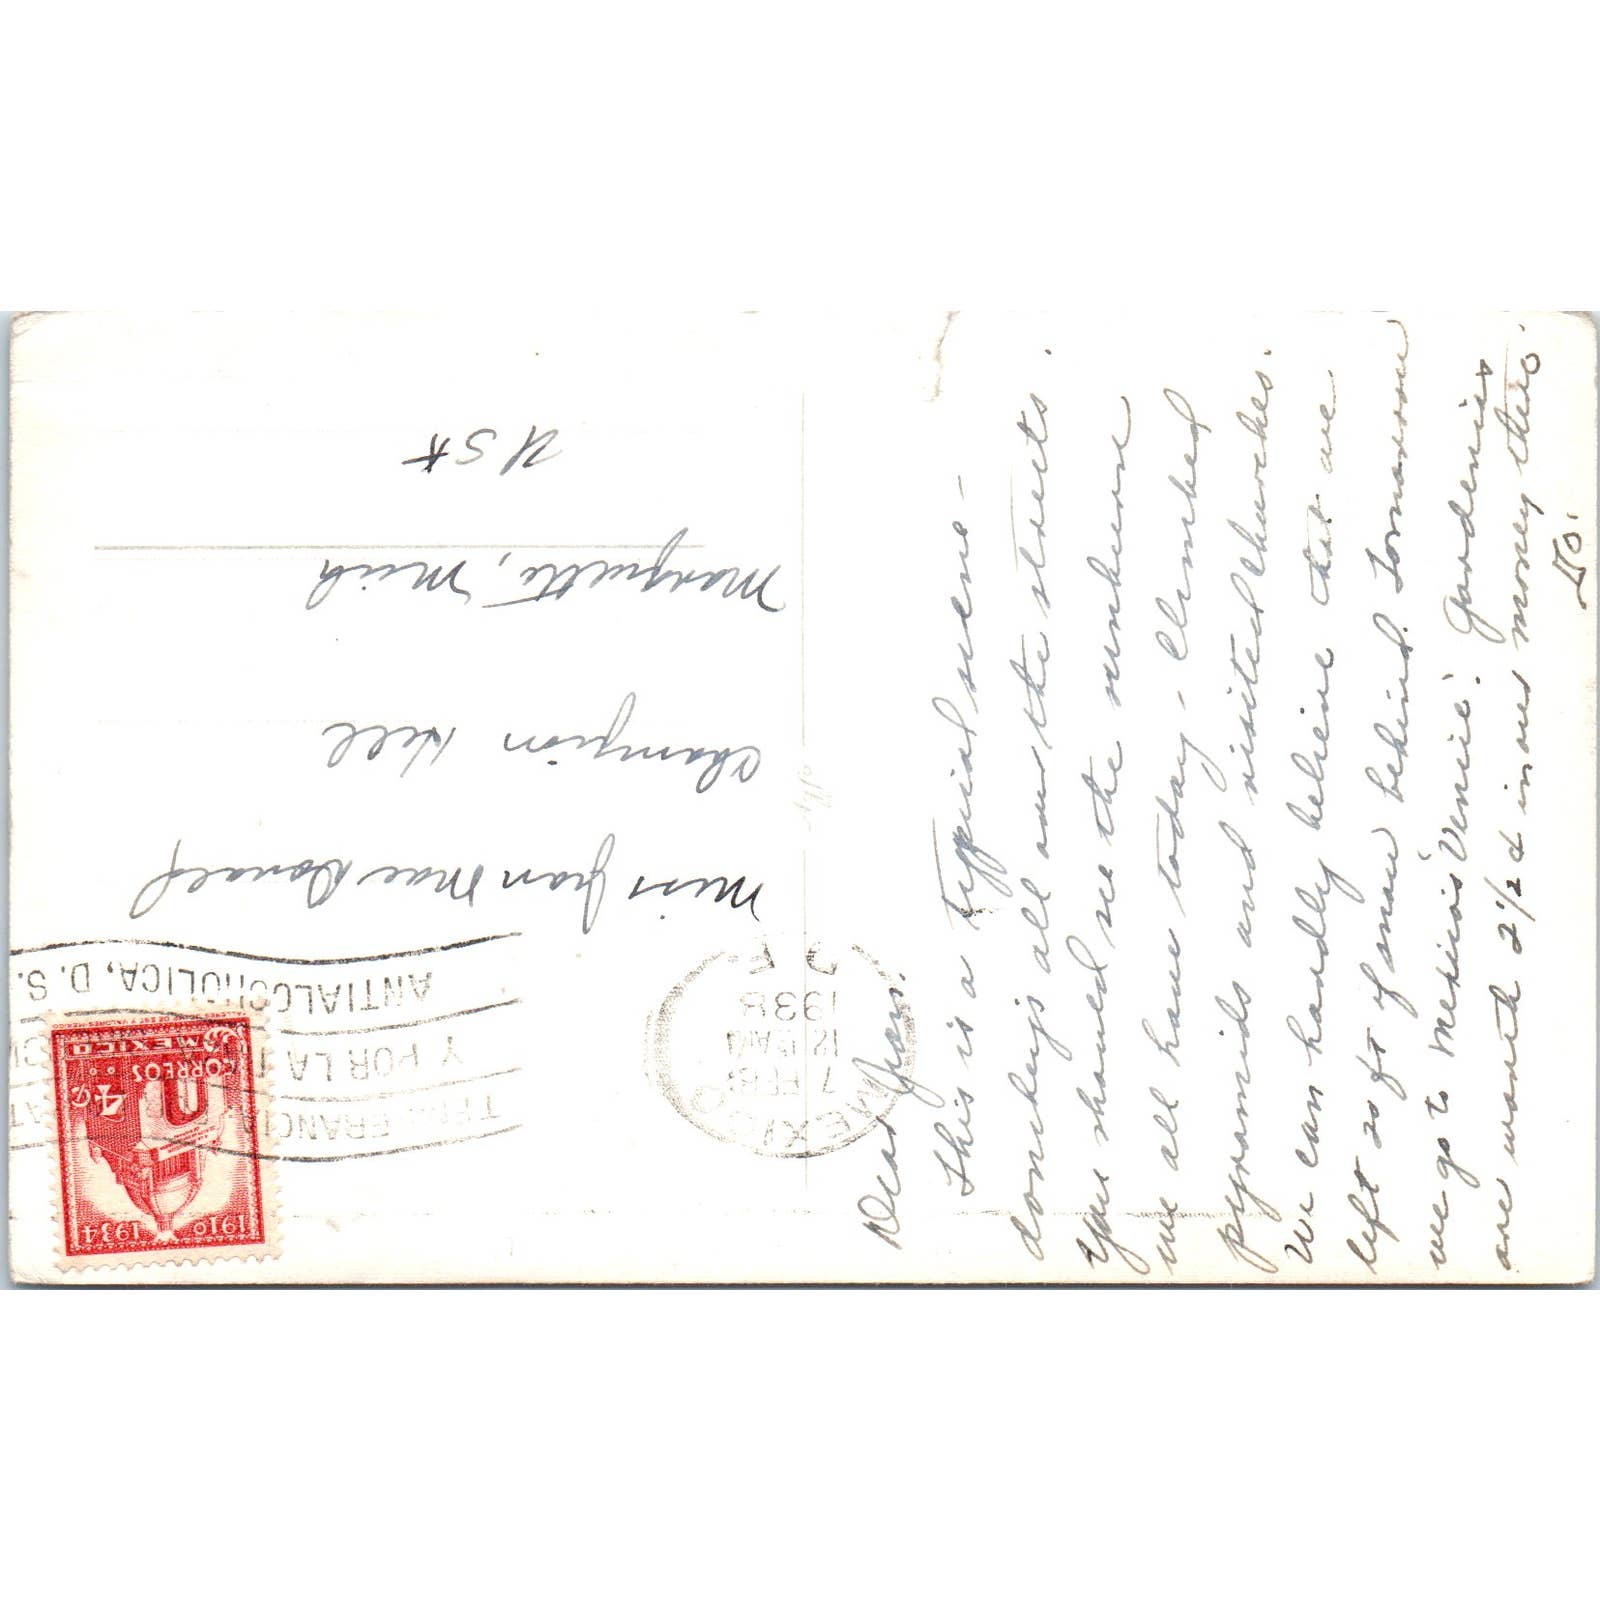 Dear Jean:
This is a typical scene -
donkeys all over the streets.
You should see the sunburn
we all have today - Climbed
pyramids and visited churches.
We can hardly believe that we
left 20 ft of snow behind. Tomorrow
we go to Mexico's Venice! Gardenias
are worth 2 1/2 ¢ in our money there.
Miss Jean Mac Donald
Champion Hill
Marquette, Mich
USA
MEXICO
7 FEB
12
1938
D. F.
Y POR LA
ANTIALCOHOLICA, D. S.
1910 1934
4 ¢
CORREOS
MEXICO